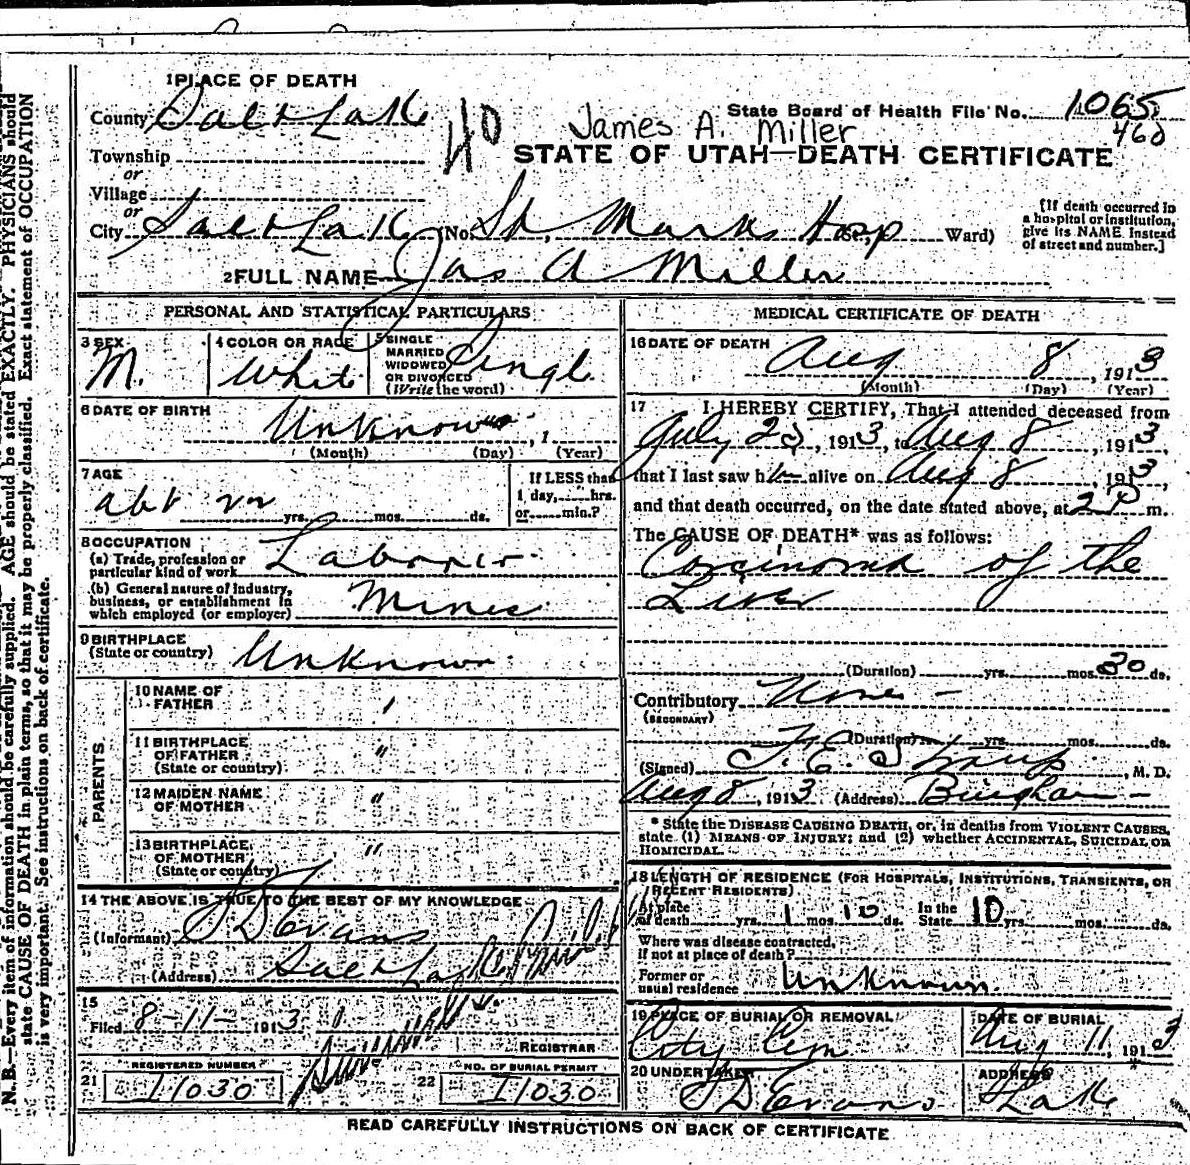 1 PLACE OF DEATH
County Salt Lake
State Board of Health File No. 1065
460
40
James A. Miller
STATE OF UTAH—DEATH CERTIFICATE
Township
or
Village
or
City Salt Lake (No. St. Marks Hosp St., Ward)
[If death occurred in a hospital or institution, give its NAME instead of street and number.]
2 FULL NAME Jas A Miller
PERSONAL AND STATISTICAL PARTICULARS
3 SEX
M.
4 COLOR OR RACE
White
5 SINGLE MARRIED WIDOWED OR DIVORCED (Write the word)
Single
6 DATE OF BIRTH
Unknown, 1
(Month) (Day) (Year)
7 AGE
abt yrs. mos. ds.
If LESS than 1 day, hrs. or min.?
8 OCCUPATION
(a) Trade, profession or particular kind of work Laborer
(b) General nature of industry, business, or establishment in which employed (or employer) Mines
9 BIRTHPLACE
(State or country) Unknown
PARENTS
10 NAME OF FATHER "
11 BIRTHPLACE OF FATHER (State or country) "
12 MAIDEN NAME OF MOTHER "
13 BIRTHPLACE OF MOTHER (State or country) "
14 THE ABOVE IS TRUE TO THE BEST OF MY KNOWLEDGE
(Informant) S D Evans
(Address) Salt Lake
15
Filed 8-11-1913
REGISTRAR
REGISTERED NUMBER
21 11030
NO. OF BURIAL PERMIT
22 11030
MEDICAL CERTIFICATE OF DEATH
16 DATE OF DEATH
Aug 8, 1913
(Month) (Day) (Year)
17 I HEREBY CERTIFY, That I attended deceased from
July 25, 1913, to Aug 8, 1913,
that I last saw him alive on Aug 8, 1913,
and that death occurred, on the date stated above, at 2 P m.
The CAUSE OF DEATH* was as follows:
Carcinoma of the
Liver
(Duration) yrs. mos. 30 ds.
Contributory None
(SECONDARY)
(Duration) yrs. mos. ds.
(Signed) F. E. Straup, M. D.
Aug 8, 1913. (Address) Bingham
* State the DISEASE CAUSING DEATH, or, in deaths from VIOLENT CAUSES, state (1) MEANS OF INJURY; and (2) whether ACCIDENTAL, SUICIDAL OR HOMICIDAL.
18 LENGTH OF RESIDENCE (FOR HOSPITALS, INSTITUTIONS, TRANSIENTS, OR RECENT RESIDENTS)
At place of death yrs. 1 mos. 10 ds. In the State 10 yrs. mos. ds.
Where was disease contracted, if not at place of death?
Former or usual residence Unknown.
19 PLACE OF BURIAL OR REMOVAL
City Cem
DATE OF BURIAL
Aug 11, 1913
20 UNDERTAKER
S D Evans
ADDRESS
S Lake
READ CAREFULLY INSTRUCTIONS ON BACK OF CERTIFICATE
N. B.—Every item of information should be carefully supplied. AGE should be stated EXACTLY. PHYSICIANS should
state CAUSE OF DEATH in plain terms, so that it may be properly classified. Exact statement of OCCUPATION
is very important. See instructions on back of certificate.